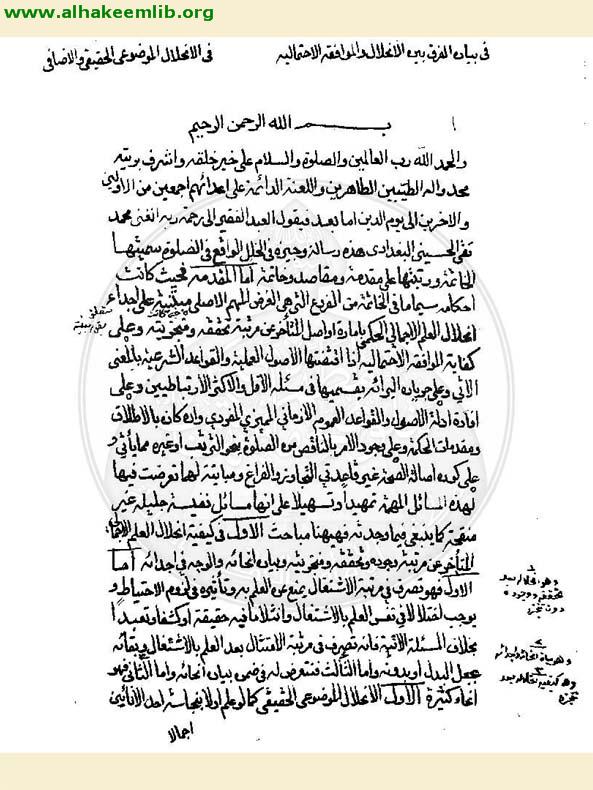 www.alhakeemlib.org
في بيان الفرق بين الانحلال والموافقة الاحتمالية
في الانحلال الموضوعي الحقيقي والاضافي
بسم الله الرحمن الرحيم
والحمد لله رب العالمين والصلوة والسلام على خير خلقه واشرف بريته
محمد واله الطيبين الطاهرين واللعنة الدائمة على اعدائهم اجمعين من الاولين
والاخرين الى يوم الدين اما بعد فيقول العبد الفقير الى رحمة ربه الغني محمد
تقي الحسيني البغدادي هذه رسالة وجيزة في الخلل الواقع في الصلوة سميتها
ورتبتها على مقدمة ومقاصد وخاتمة اما المقدمة فحيث كانت
احكامه سيما ما في الخاتمة من الفروع التي هي الغرض المهم الاصلي مبتنية على
انحلال العلم الاجمالي الحكمي بامارة او اصل المتأخر عن مرتبة تحققه ومنجزيته وعلى
كفاية الموافقة الاحتمالية اذا اقتضتها الاصول العملية والقواعد الشرعية بالمعنى
الاتي وعلى جريان البرائة بقسميها في مسئلة الاقل والاكثر الارتباطيين وعلى
افادة ادلة الاصول والقواعد العموم الازماني الفردي وان كان بالاطلاق
ومقدمات الحكمة وعلى وجود الامر بالناقص من الصلوة بنحو الترتب او غيره مما يأتي و
على كون اصالة الصحة غير قاعدتي التجاوز والفراغ ومباينة لهما تعرضت فيها
لهذه المسائل المهمة تمهيداً وتسهيلا على انها مسائل نفيسة جليلة غير
منقحة كما ينبغي فيما وجدته فهيهنا مباحث الاول في كيفية انحلال العلم الاجمالي
المتأخر عن مرتبة وجوده وتحققه ومنجزيته وبيان انحائه والوجه في اجدائه اما
الاول فهو تصرف في مرتبة الاشتغال يمنع عن العلم به وتأثيره في لزوم الاحتياط و
يوجب اختلالا في نفس العلم بالاشتغال وانثلاما فيه حقيقة او كشفا وتعبداً
بخلاف المسئلة الاتية فانه تصرف في مرتبة الامتثال بعد العلم بالاشتغال وبقائه
بجعل البدل او بدونه واما الثالث فنتعرض له في ضمن بيان انحائه واما الثاني فهو
انحاء كثيرة الاول الانحلال الموضوعي الحقيقي كما لو علم اولا بنجاسة احد الانائين
اجمالا